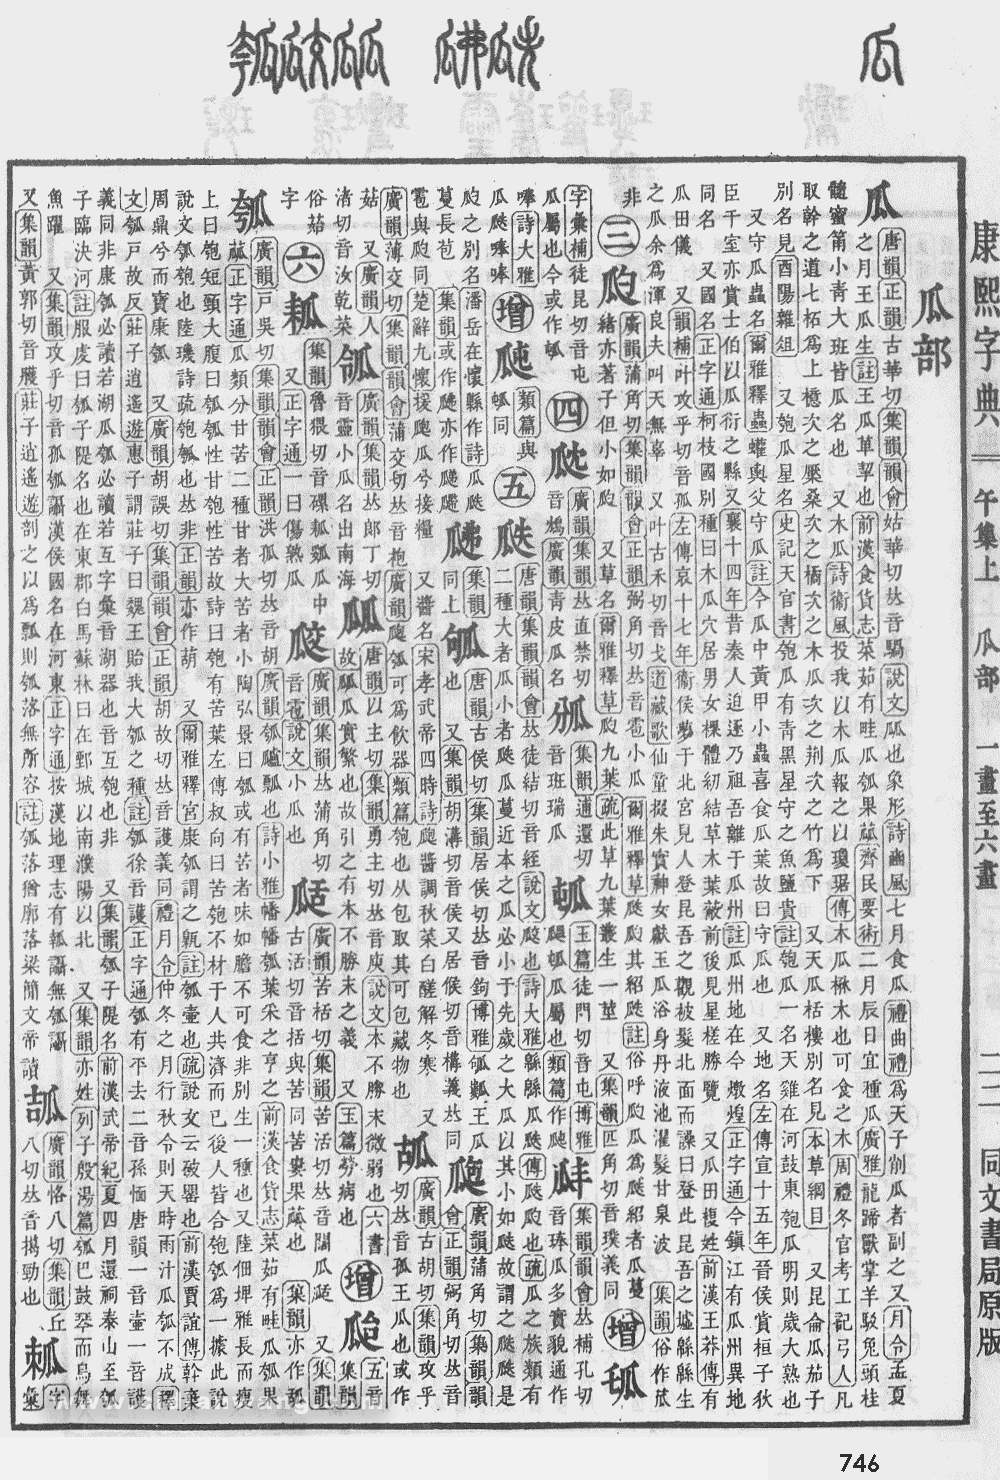 康熙字典
午集上 瓜部 一畫至六畫
二二 同文書局原版
瓜部
瓜 唐韻正韻古華切集韻韻會姑華切𠀤音騧說文㼌也象形詩豳風七月食瓜禮曲禮爲天子削瓜者副之又月令孟夏
之月王瓜生註王瓜草挈也前漢食貨志菜茹有畦瓜瓠果蓏齊民要術二月辰日宜種瓜廣雅龍蹄獸掌羊駮兔頭桂
髓蜜筩小靑大班皆瓜名也 又木瓜詩衞風投我以木瓜報之以瓊琚傳木瓜楙木也可食之木周禮冬官考工記弓人凡
取幹之道七柘爲上檍次之檿桑次之橘次之木瓜次之荆次之竹爲下 又天瓜栝樓別名見本草綱目 又昆侖瓜茄子
別名見酉陽雜俎 又匏瓜星名史記天官書匏瓜有靑黑星守之魚鹽貴註匏瓜一名天雞在河鼓東匏瓜明則歲大熟也
又守瓜蟲名爾雅釋蟲蠸輿父守瓜註今瓜中黃甲小蟲喜食瓜葉故曰守瓜也 又地名左傳宣十五年晉侯賞桓子狄
臣千室亦賞士伯以瓜衍之縣又襄十四年昔秦人迫逐乃祖吾離于瓜州註瓜州地在今燉煌正字通今鎭江有瓜州異地
同名 又國名正字通柯枝國別種曰木瓜穴居男女裸體紉結草木葉蔽前後見星槎勝覽 又瓜田複姓前漢王莽傳有
瓜田儀 又韻補叶攻乎切音孤左傳哀十七年衞侯夢于北宮見人登昆吾之觀被髮北面而譟曰登此昆吾之墟緜緜生
之瓜余爲渾良夫叫天無辜 又叶古禾切音戈道藏歌仙童掇朱實神女獻玉瓜浴身丹液池濯髮甘泉波 集韻俗作苽
非 三 瓝 廣韻蒲角切集韻韻會正韻弼角切𠀤音雹小瓜 爾雅釋草瓞瓝其紹瓞註俗呼瓝瓜爲瓞紹者瓜蔓
緒亦著子但小如瓝 又草名爾雅釋草瓝九葉疏此草九葉叢生一莖 又集韻匹角切音璞義同 增
字彙補徒昆切音屯 四 廣韻集韻𠀤直禁切音鴆廣韻靑皮瓜名 集韻逋還切音班瑞瓜 玉篇徒門切音屯博雅
瓜屬也今或作 類篇作 集韻韻會𠀤補孔切音琫瓜多實貌通作
唪詩大雅瓜瓞唪唪 增 類篇與 同 五 瓞 唐韻集韻韻會𠀤徒結切音絰說文瓝也詩大雅緜緜瓜瓞傳瓞瓝也疏瓜之族類有
二種大者瓜小者瓞瓜蔓近本之瓜必小于先歲之大瓜以其小如瓝故謂之瓞瓞是
瓝之別名潘岳在懷縣作詩瓜瓞蔓長苞 集韻或作 集韻同上
唐韻古侯切集韻居侯切𠀤音鉤博雅 王瓜也 又集韻胡溝切音侯又居候切音構義𠀤同
瓟 廣韻蒲角切集韻韻會正韻弼角切𠀤音雹與瓝同楚辭九懷援瓟瓜兮接糧 又醬名宋孝武帝四時詩瓟醬調秋菜白醝解冬寒 又
廣韻薄交切集韻韻會蒲交切𠀤音袍廣韻瓟瓠可爲飮器類篇匏也从包取其可包藏物也 廣韻古胡切集韻攻乎
切𠀤音孤王瓜也或作菇 又廣韻人渚切音汝乾菜 廣韻集韻𠀤郞丁切音靈小瓜名出南海
㼌 唐韻以主切集韻勇主切𠀤音庾說文本不勝末微弱也六書故㼌瓜實繁也故引之有本不勝末之義 又玉篇勞病也 增 集韻五音
俗菇字 六 集韻魯猥切音磥 瓜中 又正字通一曰傷熟瓜
廣韻集韻𠀤蒲角切音雹說文小瓜也 廣韻苦栝切集韻苦活切𠀤音闊瓜 又集韻古活切音括與苦同苦蔞果蓏也 集韻亦作
瓠 廣韻戸吳切集韻韻會正韻洪孤切𠀤音胡廣韻瓠𤬛瓢也詩小雅幡幡瓠葉采之亨之前漢食貨志菜茹有畦瓜瓠果
蓏正字通瓜類分甘苦二種甘者大苦者小陶弘景曰瓠或有苦者味如膽不可食非別生一種也又陸佃埤雅長而瘦
上曰瓠短頸大腹曰匏瓠性甘匏性苦故詩曰匏有苦葉左傳叔向曰苦匏不材于人共濟而已後人皆合匏瓠爲一據此說
說文瓠匏也陸璣詩疏匏瓠也𠀤非正韻亦作葫 又爾雅釋宮康瓠謂之甈註瓠壷也疏說文云破罌也前漢賈誼傳幹棄
周鼎兮而寶康瓠 又廣韻胡誤切集韻韻會正韻胡故切𠀤音護義同禮月令仲冬之月行秋令則天時雨汁瓜瓠不成釋
文瓠戸故反莊子逍遙遊惠子謂莊子曰魏王貽我大瓠之種註瓠徐音護正字通瓠有平去二音孫愐唐韻一音壷一音護
義同非康瓠必讀若湖瓜瓠必讀若互字彙音湖器也音互匏也非 又集韻瓠子隄名前漢武帝紀夏四月還祠泰山至瓠
子臨決河註服虔曰瓠子隄名也在東郡白馬蘇林曰在鄄城以南濮陽以北 又集韻亦姓列子殷湯篇瓠巴鼓琴而鳥舞
魚躍 又集韻攻乎切音孤瓠讘漢侯國名在河東正字通按漢地理志有瓡讘無瓠讘
又集韻黃郭切音臒莊子逍遙遊剖之以爲瓢則瓠落無所容註瓠落猶廓落梁簡文帝讀 廣韻恪八切集韻丘八切𠀤音㨙勁也 字彙
746